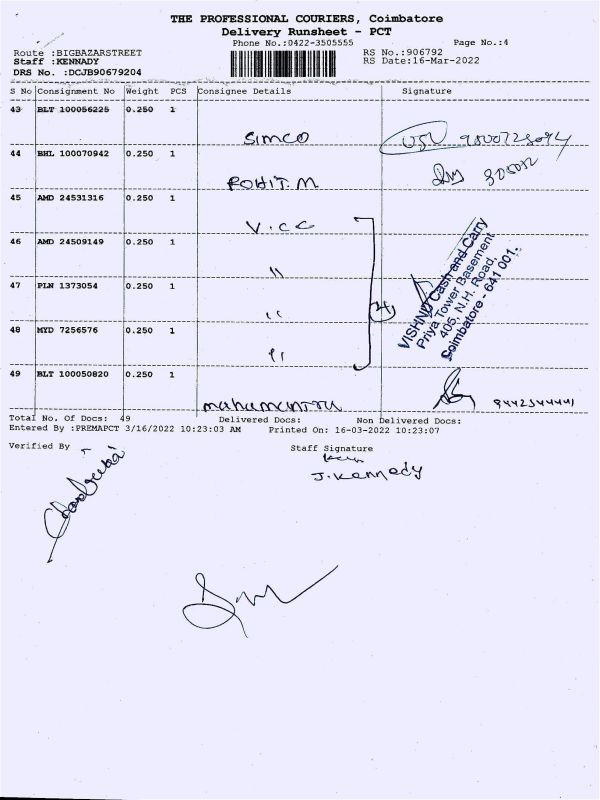 THE PROFESSIONAL COURIERS, Coimbatore
Delivery Runsheet - PCT
Phone No.:0422-3505555 Page No.:4
Route :BIGBAZARSTREET RS No.:906792
Staff :KENNADY RS Date:16-Mar-2022
DRS No. :DCJB90679204
S No Consignment No Weight PCS Consignee Details Signature
43 BLT 100056225 0.250 1
SIMCO
44 BHL 100070942 0.250 1
ROHIT.M
45 AMD 24531316 0.250 1
V.CC
46 AMD 24509149 0.250 1
"
47 PLN 1373054 0.250 1
"
48 MYD 7256576 0.250 1
"
VISHNU Cash and Carry
Priya Tower Basement
405, N.H. Road,
Coimbatore - 641 001.
49 BLT 100050820 0.250 1
mahamantra 9442344441
Total No. Of Docs: 49 Delivered Docs: Non Delivered Docs:
Entered By :PREMAPCT 3/16/2022 10:23:03 AM Printed On: 16-03-2022 10:23:07
Verified By Staff Signature
J. Kennedy